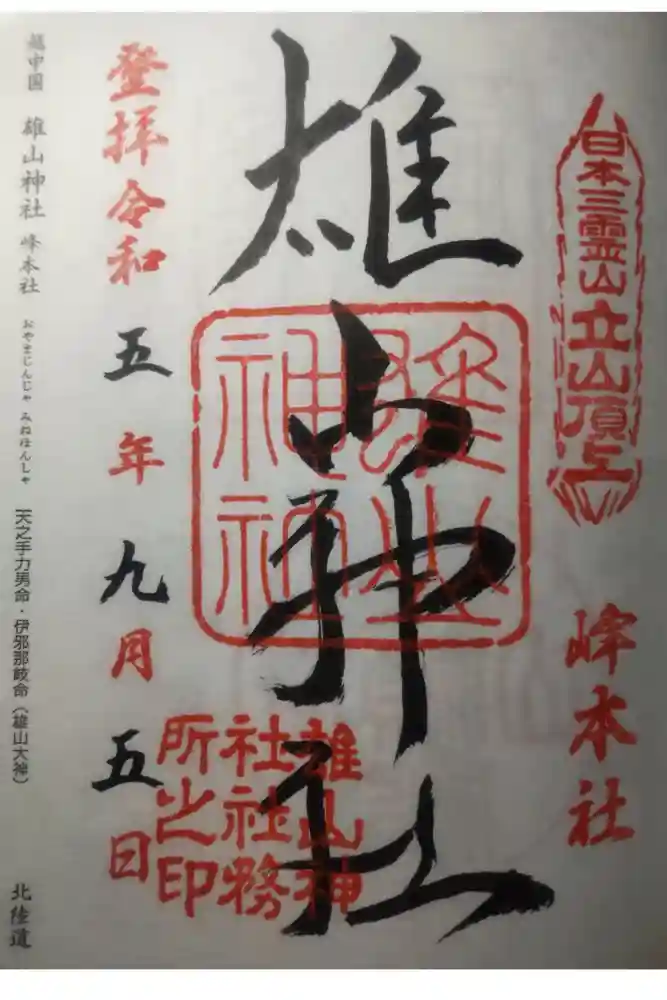 日本三霊山立山頂上
峰本社
雄山神社
雄山神社
雄山神
社社務
所之印
登拝令和五年九月五日
越中国 雄山神社 峰本社 おやまじんじゃ みねほんしゃ 天之手力男命・伊邪那岐命（雄山大神） 北陸道